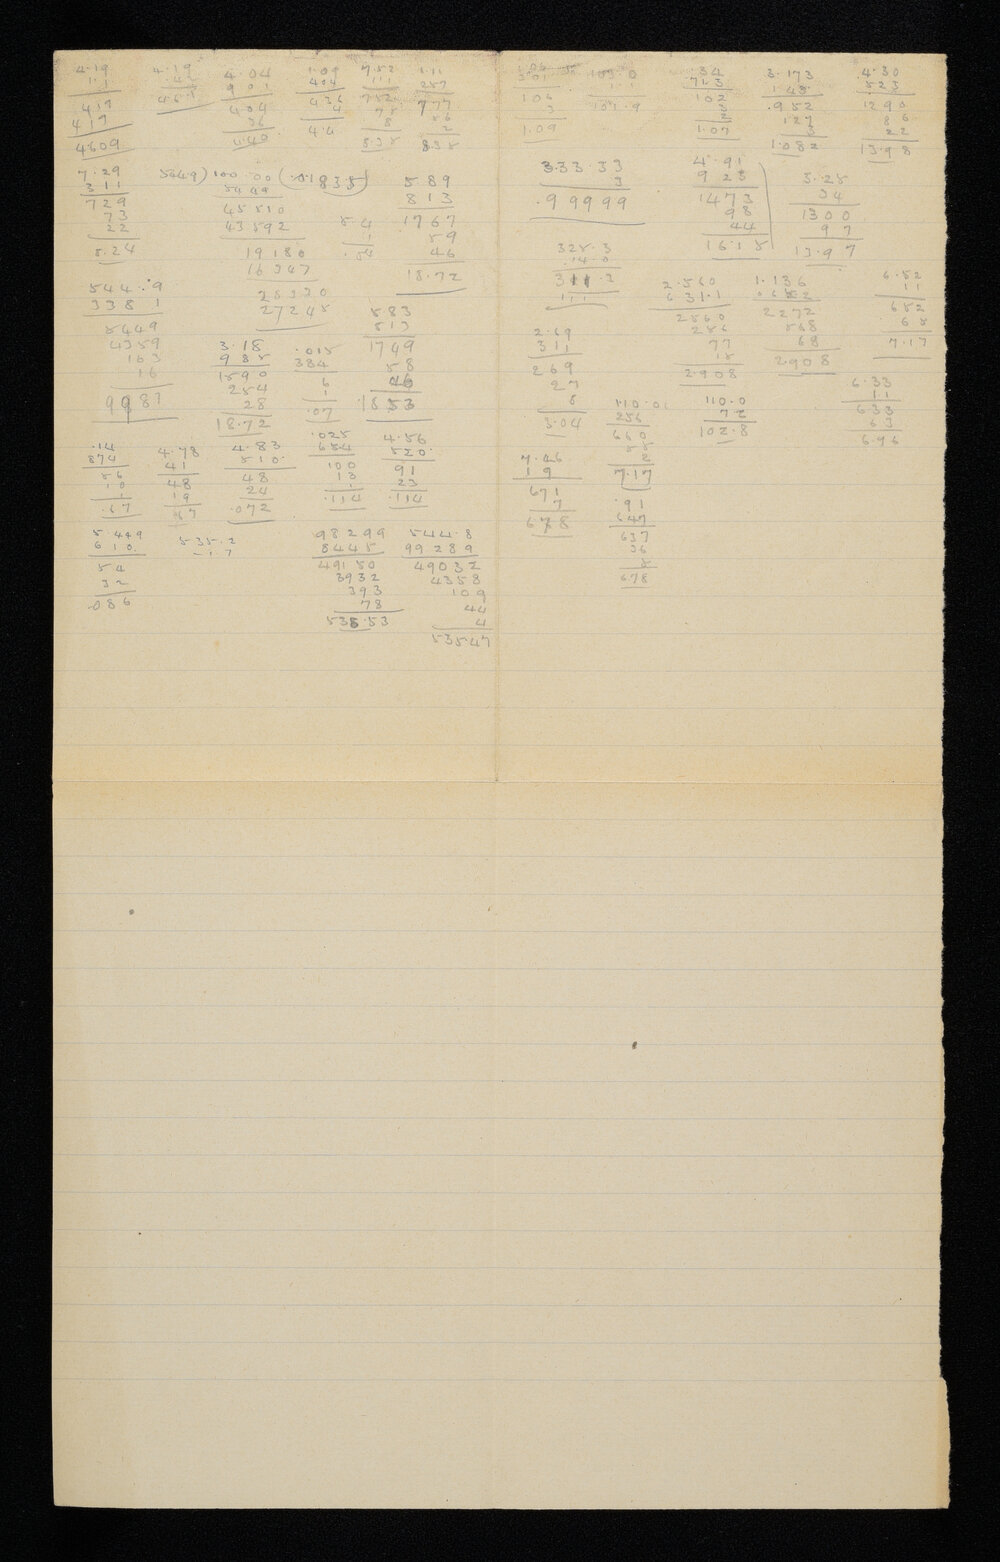 4.19
1.1
419
419
4609
4.19
.42
4.04
901
404
36
4.40
1.09
404
436
4
4.4
7.52
111
752
75
8
838
1.11
257
777
56
2
835
7.29
311
729
73
22
8.24
5449) 100.00 (.01835
5449
45510
43592
19180
16347
28330
27245
54
1
.54
589
813
1767
59
46
18.72
544.9
3381
5449
4359
163
16
9983
3.18
985
1590
254
28
18.72
.015
384
6
1
.07
583
813
1749
58
46
1853
.14
874
56
10
1
.67
4.78
41
48
19
67
4.83
510.
48
24
.072
.025
654
100
13
1
.114
4.56
520.
91
23
.114
5.449
610.
54
32
.086
535.2
-1.7
98299
8445
49150
3932
393
78
535.53
544.8
99289
49032
4358
109
44
4
53547
106
3
1.09
107.9
34
713
102
3
2
1.07
3.173
148
.952
127
3
1.082
4.30
523
1290
86
22
13.98
333.33
3
.99999
4.91
923
1473
98
44
16.15
3.25
34
1300
97
13.97
325.3
14.0
311.3
2.560
631.1
2560
256
77
15
2908
1.136
0652
2272
568
68
2908
6.52
11
652
65
7.17
2.69
311
269
27
8
3.04
110.0
256
660
55
2
7.17
110.0
7.2
102.8
6.33
11
633
63
6.96
7.46
19
671
7
678
.91
647
637
36
5
678